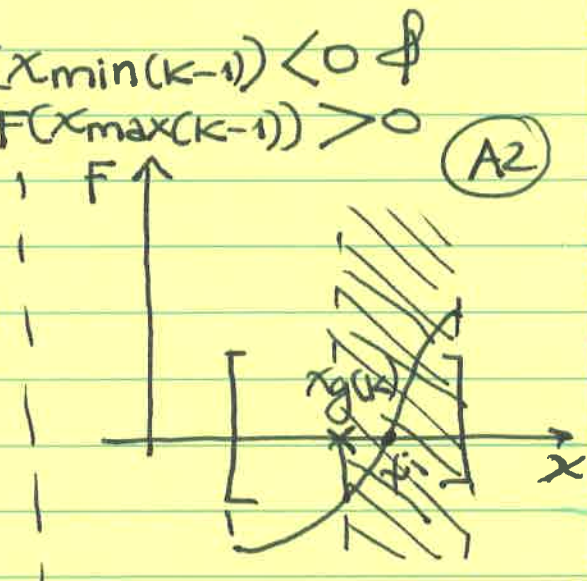 (xmin(k-1)) <0 &
F(xmax(k-1)) >0
A2
F
xg(k)
xi
x